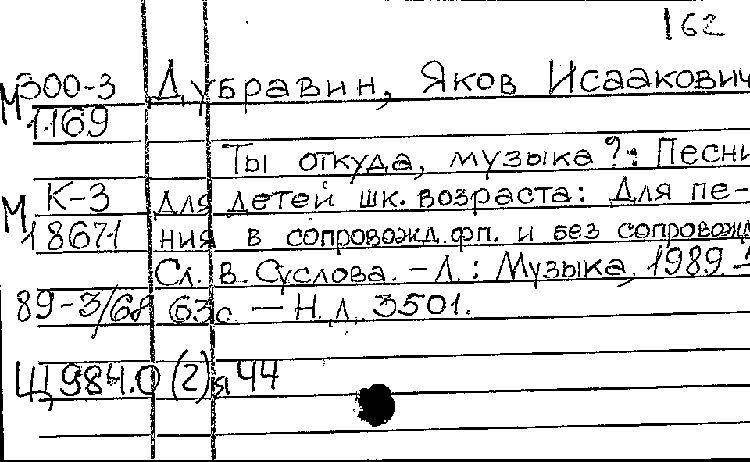 162
М 300-3 Дубравин, Яков Исаакович
1169
Ты откуда, музыка?: Песни
М К-3 для детей шк. возраста: Для пе-
18671 ния в сопровожд. фп. и без сопровожд
Сл. В. Суслова. – Л.: Музыка, 1989 –
89-3/68 63с. – Н. д. 3501.
Щ 984.0 (2) я 44